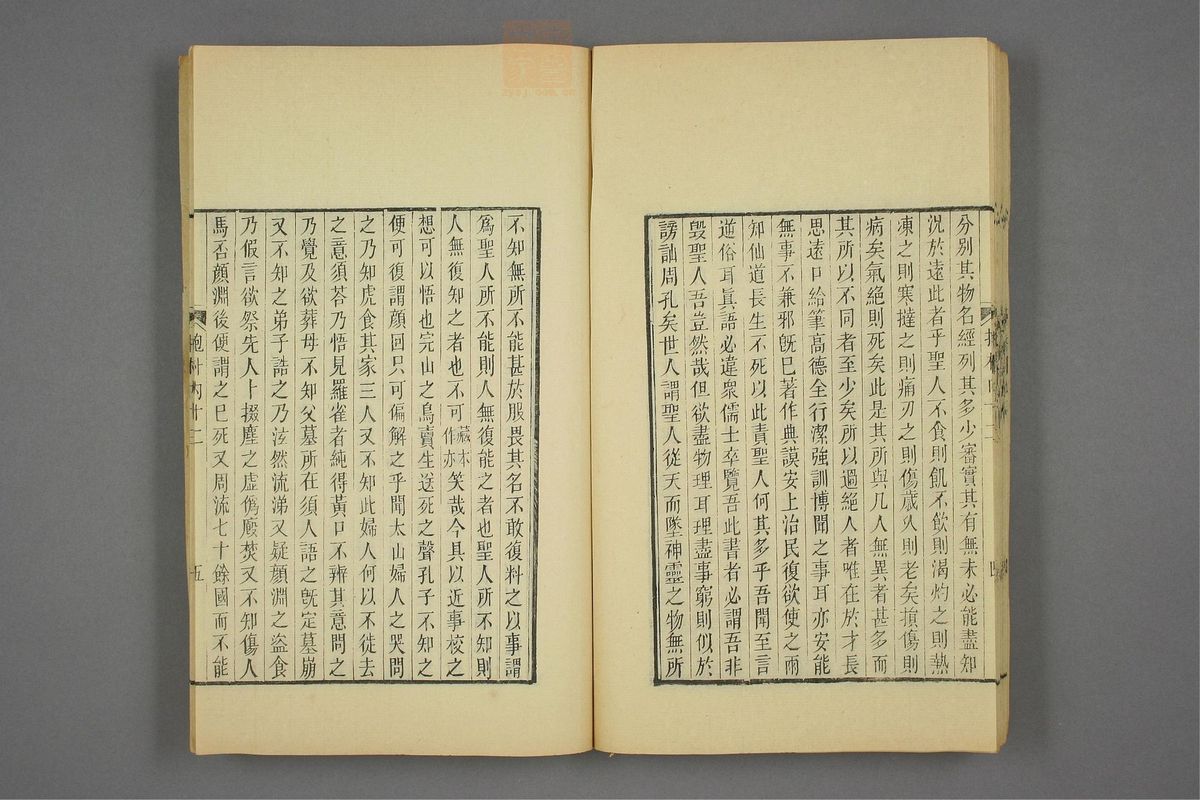 分別其物名經列其多少審實其有無未必能盡知
況於遠此者乎聖人不食則飢不飮則渴灼之則熱
凍之則寒撻之則痛刃之則傷歲久則老矣損傷則
病矣氣絕則死矣此是其所與凡人無異者甚多而
其所以不同者至少矣所以過絕人者唯在於才長
思遠口給筆高德全行潔強訓博聞之事耳亦安能
無事不兼邪旣已著作典謨安上治民復欲使之兩
知仙道長生不死以此責聖人何其多乎吾聞至言
逆俗耳眞語必違衆儒士卒覽吾此書者必謂吾非
毀聖人吾豈然哉但欲盡物理耳理盡事窮則似於
謗訕周孔矣世人謂聖人從天而墜神靈之物無所
不知無所不能甚於服畏其名不敢復料之以事謂
爲聖人所不能則人無復能之者也聖人所不知則
人無復知之者也不可藏本作亦笑哉今具以近事校之
想可以悟也完山之鳥賣生送死之聲孔子不知之
便可復謂顏回只可偏解之乎聞太山婦人之哭問
之乃知虎食其家三人又不知此婦人何以不徙去
之意須荅乃悟見羅雀者純得黃口不辨其意問之
乃覺及欲葬母不知父墓所在須人語之旣定墓崩
又不知之弟子誥之乃泫然流涕又疑顏淵之盜食
乃假言欲祭先人卜掇塵之虛僞廏焚又不知傷人
馬否顏淵後便謂之已死又周流七十餘國而不能
抱朴內十二
五